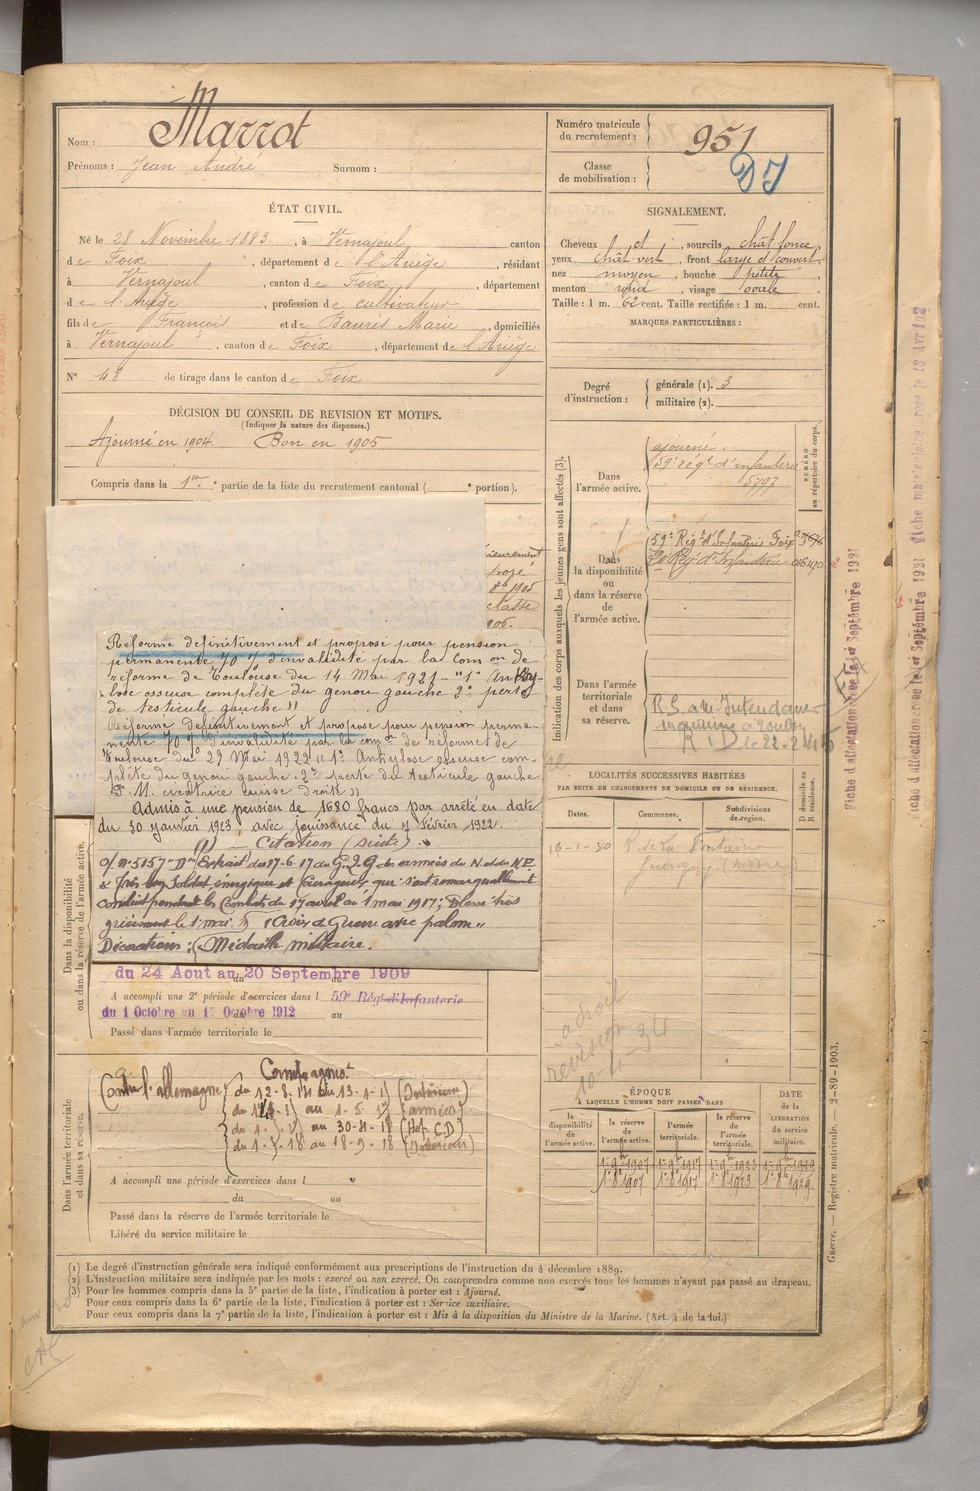 Nom : Marrot
Prénoms : Jean André Surnom :
ÉTAT CIVIL.
Né le 28 Novembre 1883, à Vernajoul canton
de Foix, département de l'Ariège, résidant
à Vernajoul, canton de Foix, département
de l'Ariège, profession de cultivateur
fils de François et de Baurès Marie, domiciliés
à Vernajoul, canton de Foix, département de l'Ariège
N° 48 de tirage dans le canton de Foix
DÉCISION DU CONSEIL DE REVISION ET MOTIFS.
(Indiquer la nature des dispenses.)
Ajourné en 1904 Bon en 1905
Compris dans la 1re partie de la liste du recrutement cantonal ( e portion).
Numéro matricule
du recrutement : 951
Classe
de mobilisation :
SIGNALEMENT.
Cheveux et, sourcils chât foncé,
yeux chât. vert, front large et couvert
nez moyen, bouche petite,
menton rond, visage ovale
Taille : 1 m. 62 cent. Taille rectifiée : 1 m. cent.
MARQUES PARTICULIÈRES :
Degré
d'instruction :
générale (1). 3
militaire (2).
Indication des corps auxquels les jeunes gens sont affectés (3).
NUMÉRO
au répertoire du corps.
Dans
l'armée active.
ajourné.
59e Régt d'infanterie
5797
Dans
la disponibilité
ou
dans la réserve
de
l'armée active.
59e Régt d'Infanterie Foix
Régt d'Infanterie 016470
Dans l'armée
territoriale
et dans
sa réserve.
R.D le 22-2-1915
érieurement
1905
classe
Réformé définitivement et proposé pour pension
permanente 70 % d'invalidité par la Comon de
réforme de Toulouse du 14 Mai 1921 - "1° Anky-
lose osseuse complète du genou gauche 2° perte
de testicule gauche"
Réformé définitivement et proposé pour pension perma-
nente 70 % d'invalidité par la comon de réformes de
Toulouse du 29 Mai 1922 "1° Ankylose osseuse com-
plète du genou gauche. 2° perte du testicule gauche
cicatrice cuisse droite"
Admis à une pension de 1680 francs par arrêté en date
du 30 janvier 1923, avec jouissance du Février 1922.
Citation (suite)
O/ n° 5157 "D" Extrait du 17-6-17 du G.Q.G des armées du N et du N.E
Très bon Soldat énergique et Courageux, qui s'est remarquablement
conduit pendant les Combats du 17 avril au 1 mai 1917; Blessé très
grièvement le 1 mai 17 "Croix de Guerre avec palme"
Décorations : Médaille militaire.
Dans la disponibilité
ou dans la réserve de l'armée active.
du 24 Aout au 20 Septembre 1909
A accompli une 2e période d'exercices dans l 59e Régt d'Infanterie
du 1 Octobre au 17 Octobre 1912
du au
Passé dans l'armée territoriale le
Dans l'armée territoriale
et dans sa réserve.
Campagnes
Contre l'allemagne
du 12-8-14 au 13-1-1 (Intérieur)
au 1-5-17 (armées)
au 30-4-18
au 18-9-18 (Intérieur)
A accompli une période d'exercices dans l
du au
Passé dans la réserve de l'armée territoriale le
Libéré du service militaire le
LOCALITÉS SUCCESSIVES HABITÉES
PAR SUITE DE CHANGEMENTS DE DOMICILE OU DE RÉSIDENCE.
Dates.
Communes.
Subdivisions
de région.
D domicile ou
R résidence.
16-1-30 R. de la Fontaine
(Nièvre)
révision
ÉPOQUE
A LAQUELLE L'HOMME DOIT PASSER DANS
la
disponibilité
de
l'armée active.
la réserve
de
l'armée active.
l'armée
territoriale.
la réserve
de
l'armée
territoriale.
DATE
de la
LIBÉRATION
du service
militaire.
1-8bre 1907 1-8bre 1917 1-8bre 1923 1-8bre 1929
(1) Le degré d'instruction générale sera indiqué conformément aux prescriptions de l'instruction du 4 décembre 1889.
(2) L'instruction militaire sera indiquée par les mots : exercé ou non exercé. On comprendra comme non exercés tous les hommes n'ayant pas passé au drapeau.
(3) Pour les hommes compris dans la 5e partie de la liste, l'indication à porter est : Ajourné.
Pour ceux compris dans la 6e partie de la liste, l'indication à porter est : Service auxiliaire.
Pour ceux compris dans la 7e partie de la liste, l'indication à porter est : Mis à la disposition du Ministre de la Marine. (Art. 4 de la loi.)
Guerre. — Registre matricule. 2-89-1903.
Fiche d'affectation créée le 1er Septembre 1931
Fiche d'affectation créée le 1er Septembre 1931